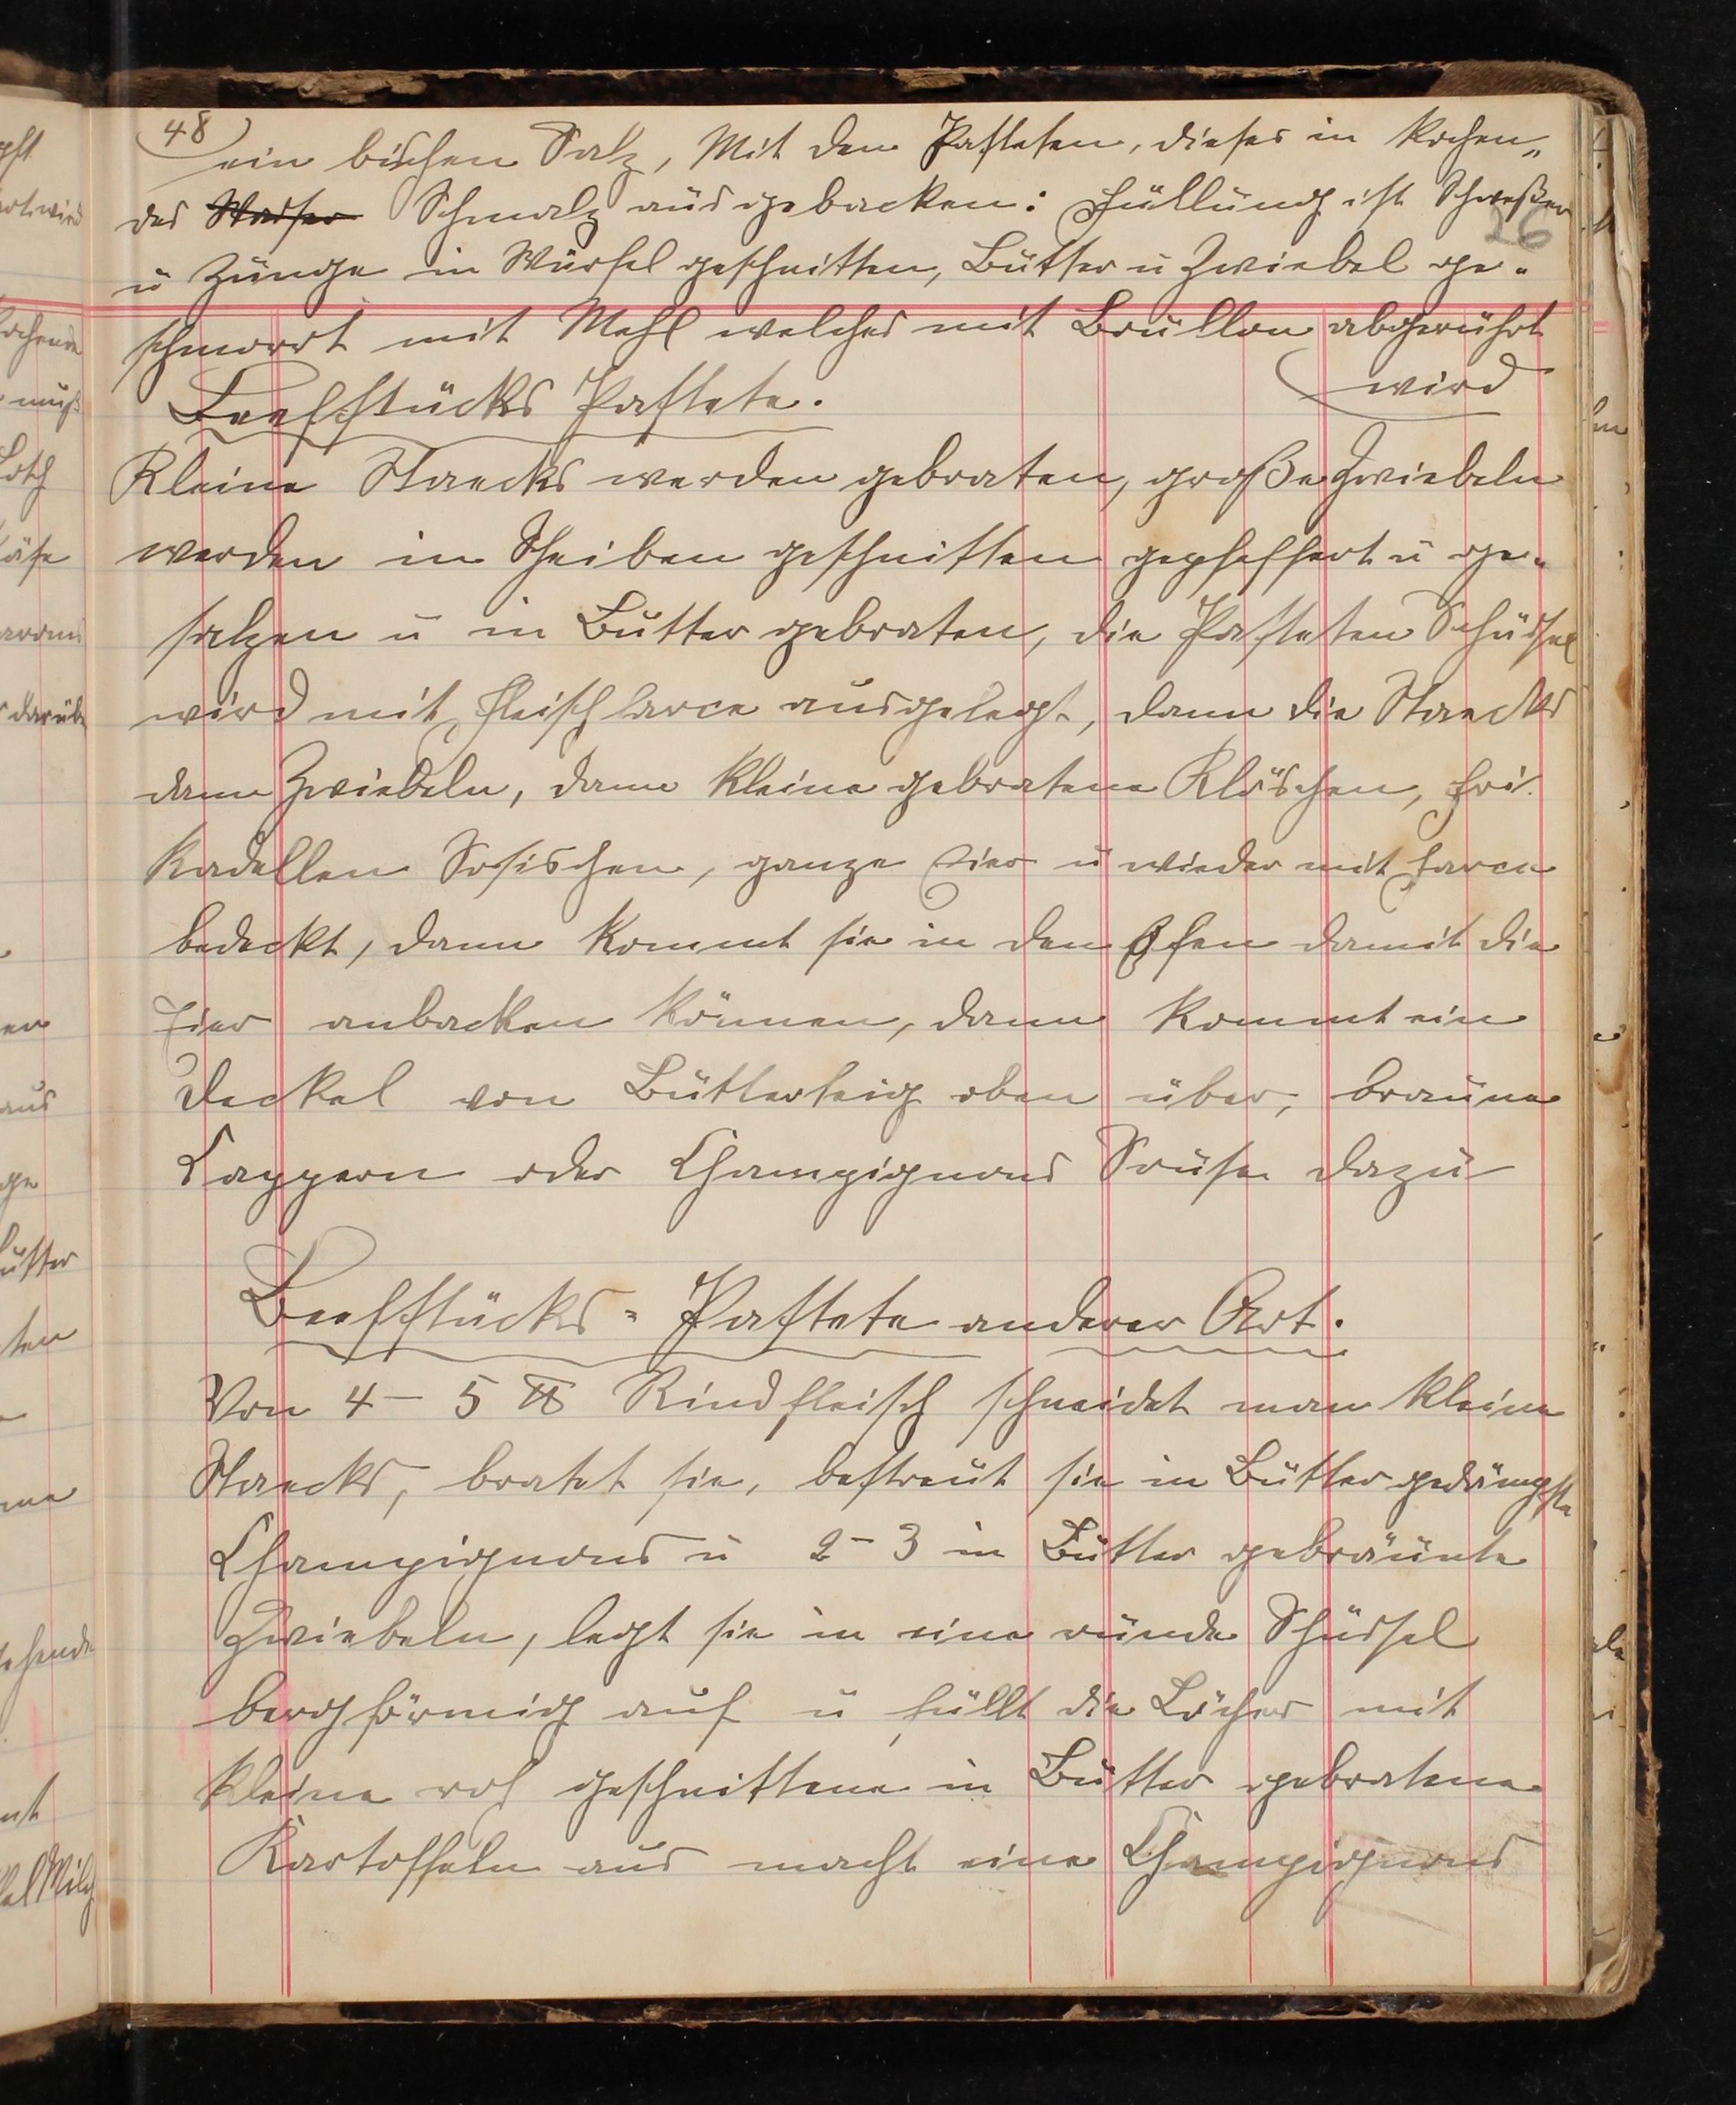 48
ein bischen Salz, Mit den Pasteten, dieses in kochen„
des Wasser Schmalz ausgebacken: Füllung ist Schweßer
26
u Zunge in Würfel geschnitten, Butter u Zwiebel ge„
schmorrt mit Mehl welches mit Boullon abgerührt
wird
Beefstücks Pastete.
Kleine Staecks werden gebraten, große Zwiebeln
werden in Scheiben geschnitten gepfeffert u ge„
salzen u in Butter gebraten, die Pasteten Schüssel
wird mit Fleischfarce ausgelegt, dann die Staecks
dann Zwiebeln, dann kleine gebratene Klöschen, Fri¬
kadellen Sosischen, ganze Eier u wieder mit Farce
bedeckt, dann kommt sie in den Ofen damit die
Eier anbacken können, dann kommt ein
Deckel von Butterteig oben über, braune
Cappern oder Champignons Sause dazu
Beefstücks = Pastete anderer Art.
Von 4 - 5 ℔ Rindfleisch schneidet man kleine
Staecks, bratet sie, bestreut sie in Butter gedämpfte
Champignons u 2 - 3 in Butter gebräunte
Zwiebeln, legt sie in eine runde Schüssel
bergförmig auf u füllt die Löcher mit
kleine roh geschnittene in Butter gebratene
Kartoffeln aus macht eine Champignons